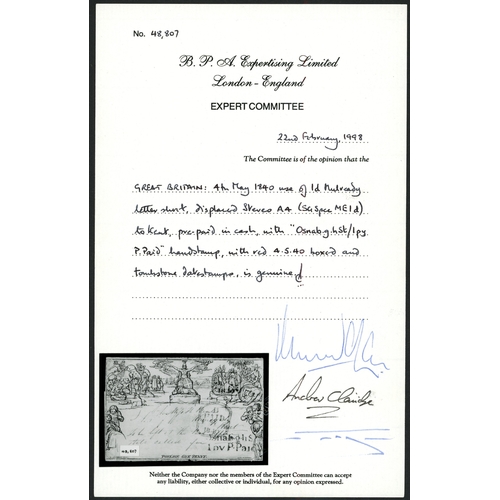 No. 48,807
B. P. A. Expertising Limited
London - England
EXPERT COMMITTEE
22nd February, 1998
The Committee is of the opinion that the
GREAT BRITAIN: 4th May 1840 use of 1d Mulready
letter sheet, displaced Stereo A4 (SG Spec ME1d)
to Kent, pre-paid in cash, with "Osnabg.hSt/1py
P.Paid" handstamp, with red 4.5.40 boxed and
tombstone datestamps, is genuine
Andrew Claridge
POSTAGE ONE PENNY.
1py P.Paid
48,807
Neither the Company nor the members of the Expert Committee can accept
any liability, either collective or individual, for any opinion expressed.